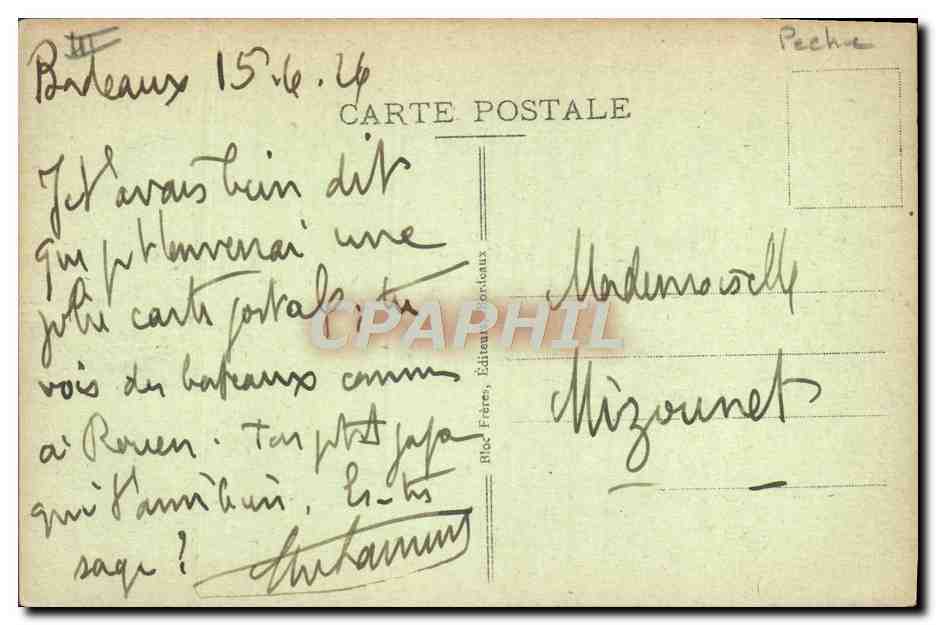 III
Peche
Bordeaux 15.6.24
CARTE POSTALE
Je t'avais bien dit
que je t'enverrai une
jolie carte postale, tu
vois des bateaux comme
à Rouen. Ton petit papa
qui t'aime bien. Es-tu
sage ?
Bloc Frères, Éditeurs Bordeaux
Mademoiselle
Mizounet
CPAPHIL